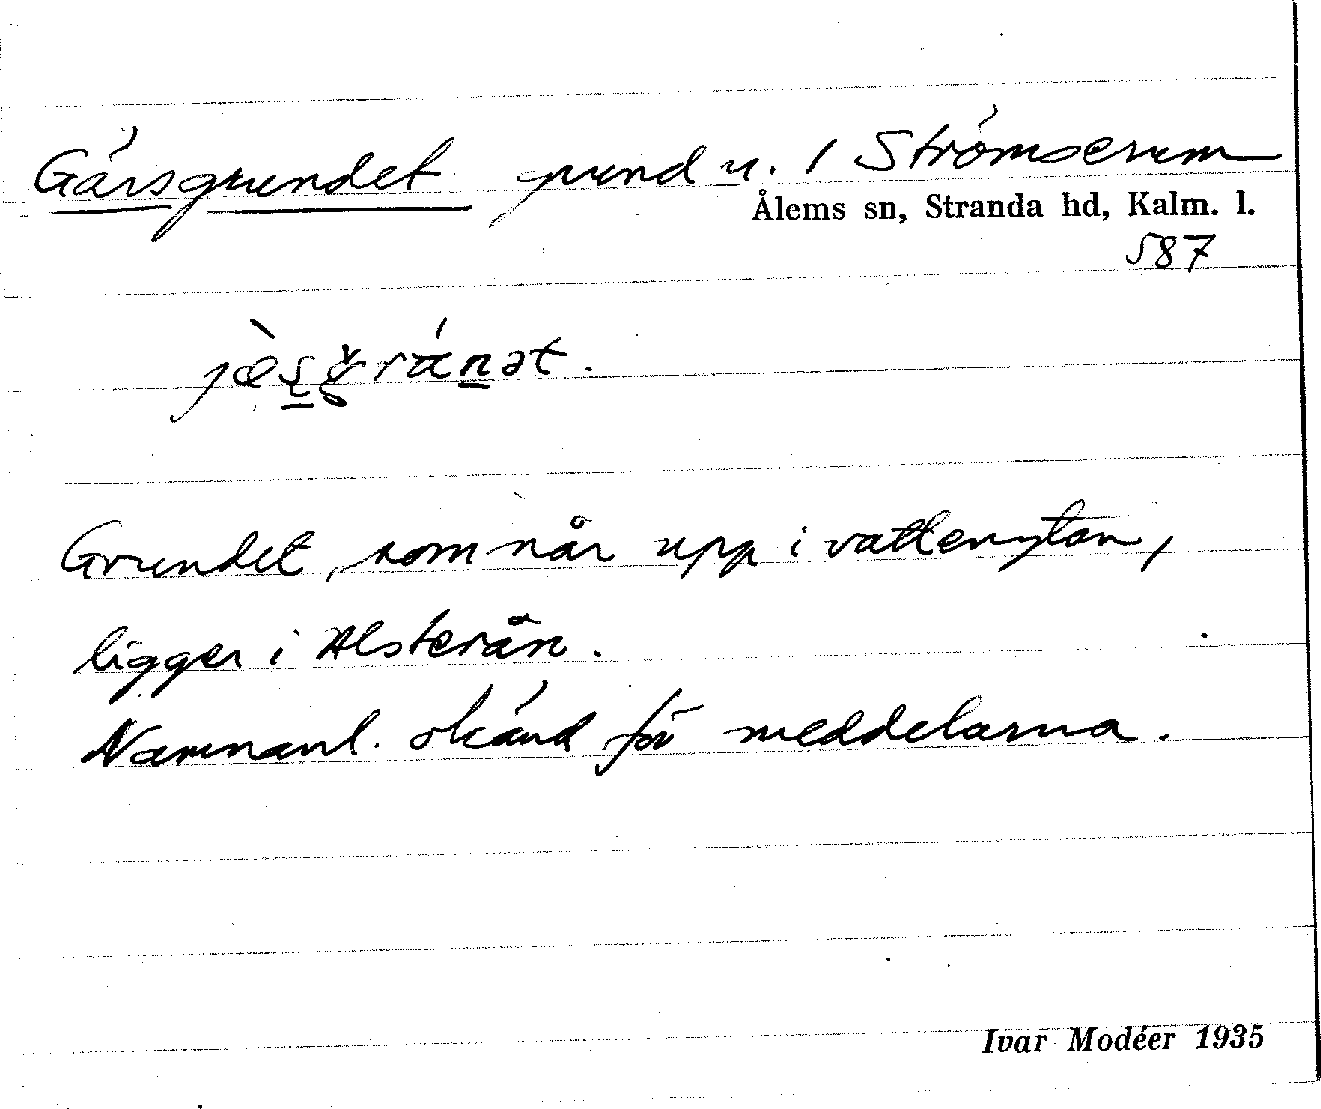 Gärsgrundet grund u. / Strömserum
Ålems sn, Stranda hd, Kalm. l.
587
Grundet, som når upp i vattenytan,
ligger i Alsterån.
Namnanl. okänd för meddelarna.
Ivar Modéer 1935